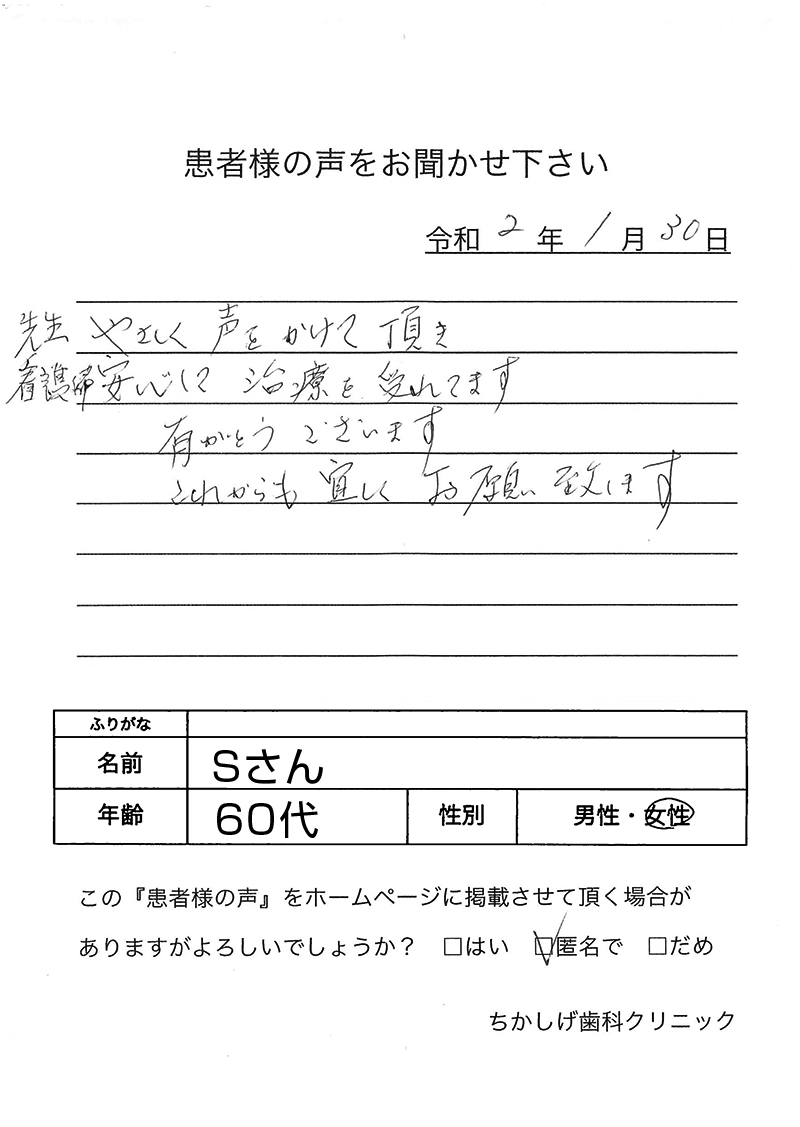 患者様の声をお聞かせ下さい
令和 2 年 1 月 30 日
先生 やさしく 声を かけて 頂き
看護婦 安心して 治療を 受れてます
有がとう ございます
これからも 宜しく お願い 致します
ふりがな
名前 Sさん
年齢 60代 性別 男性・女性
この『患者様の声』をホームページに掲載させて頂く場合が
ありますがよろしいでしょうか？ □はい ☑匿名で □だめ
ちかしげ歯科クリニック